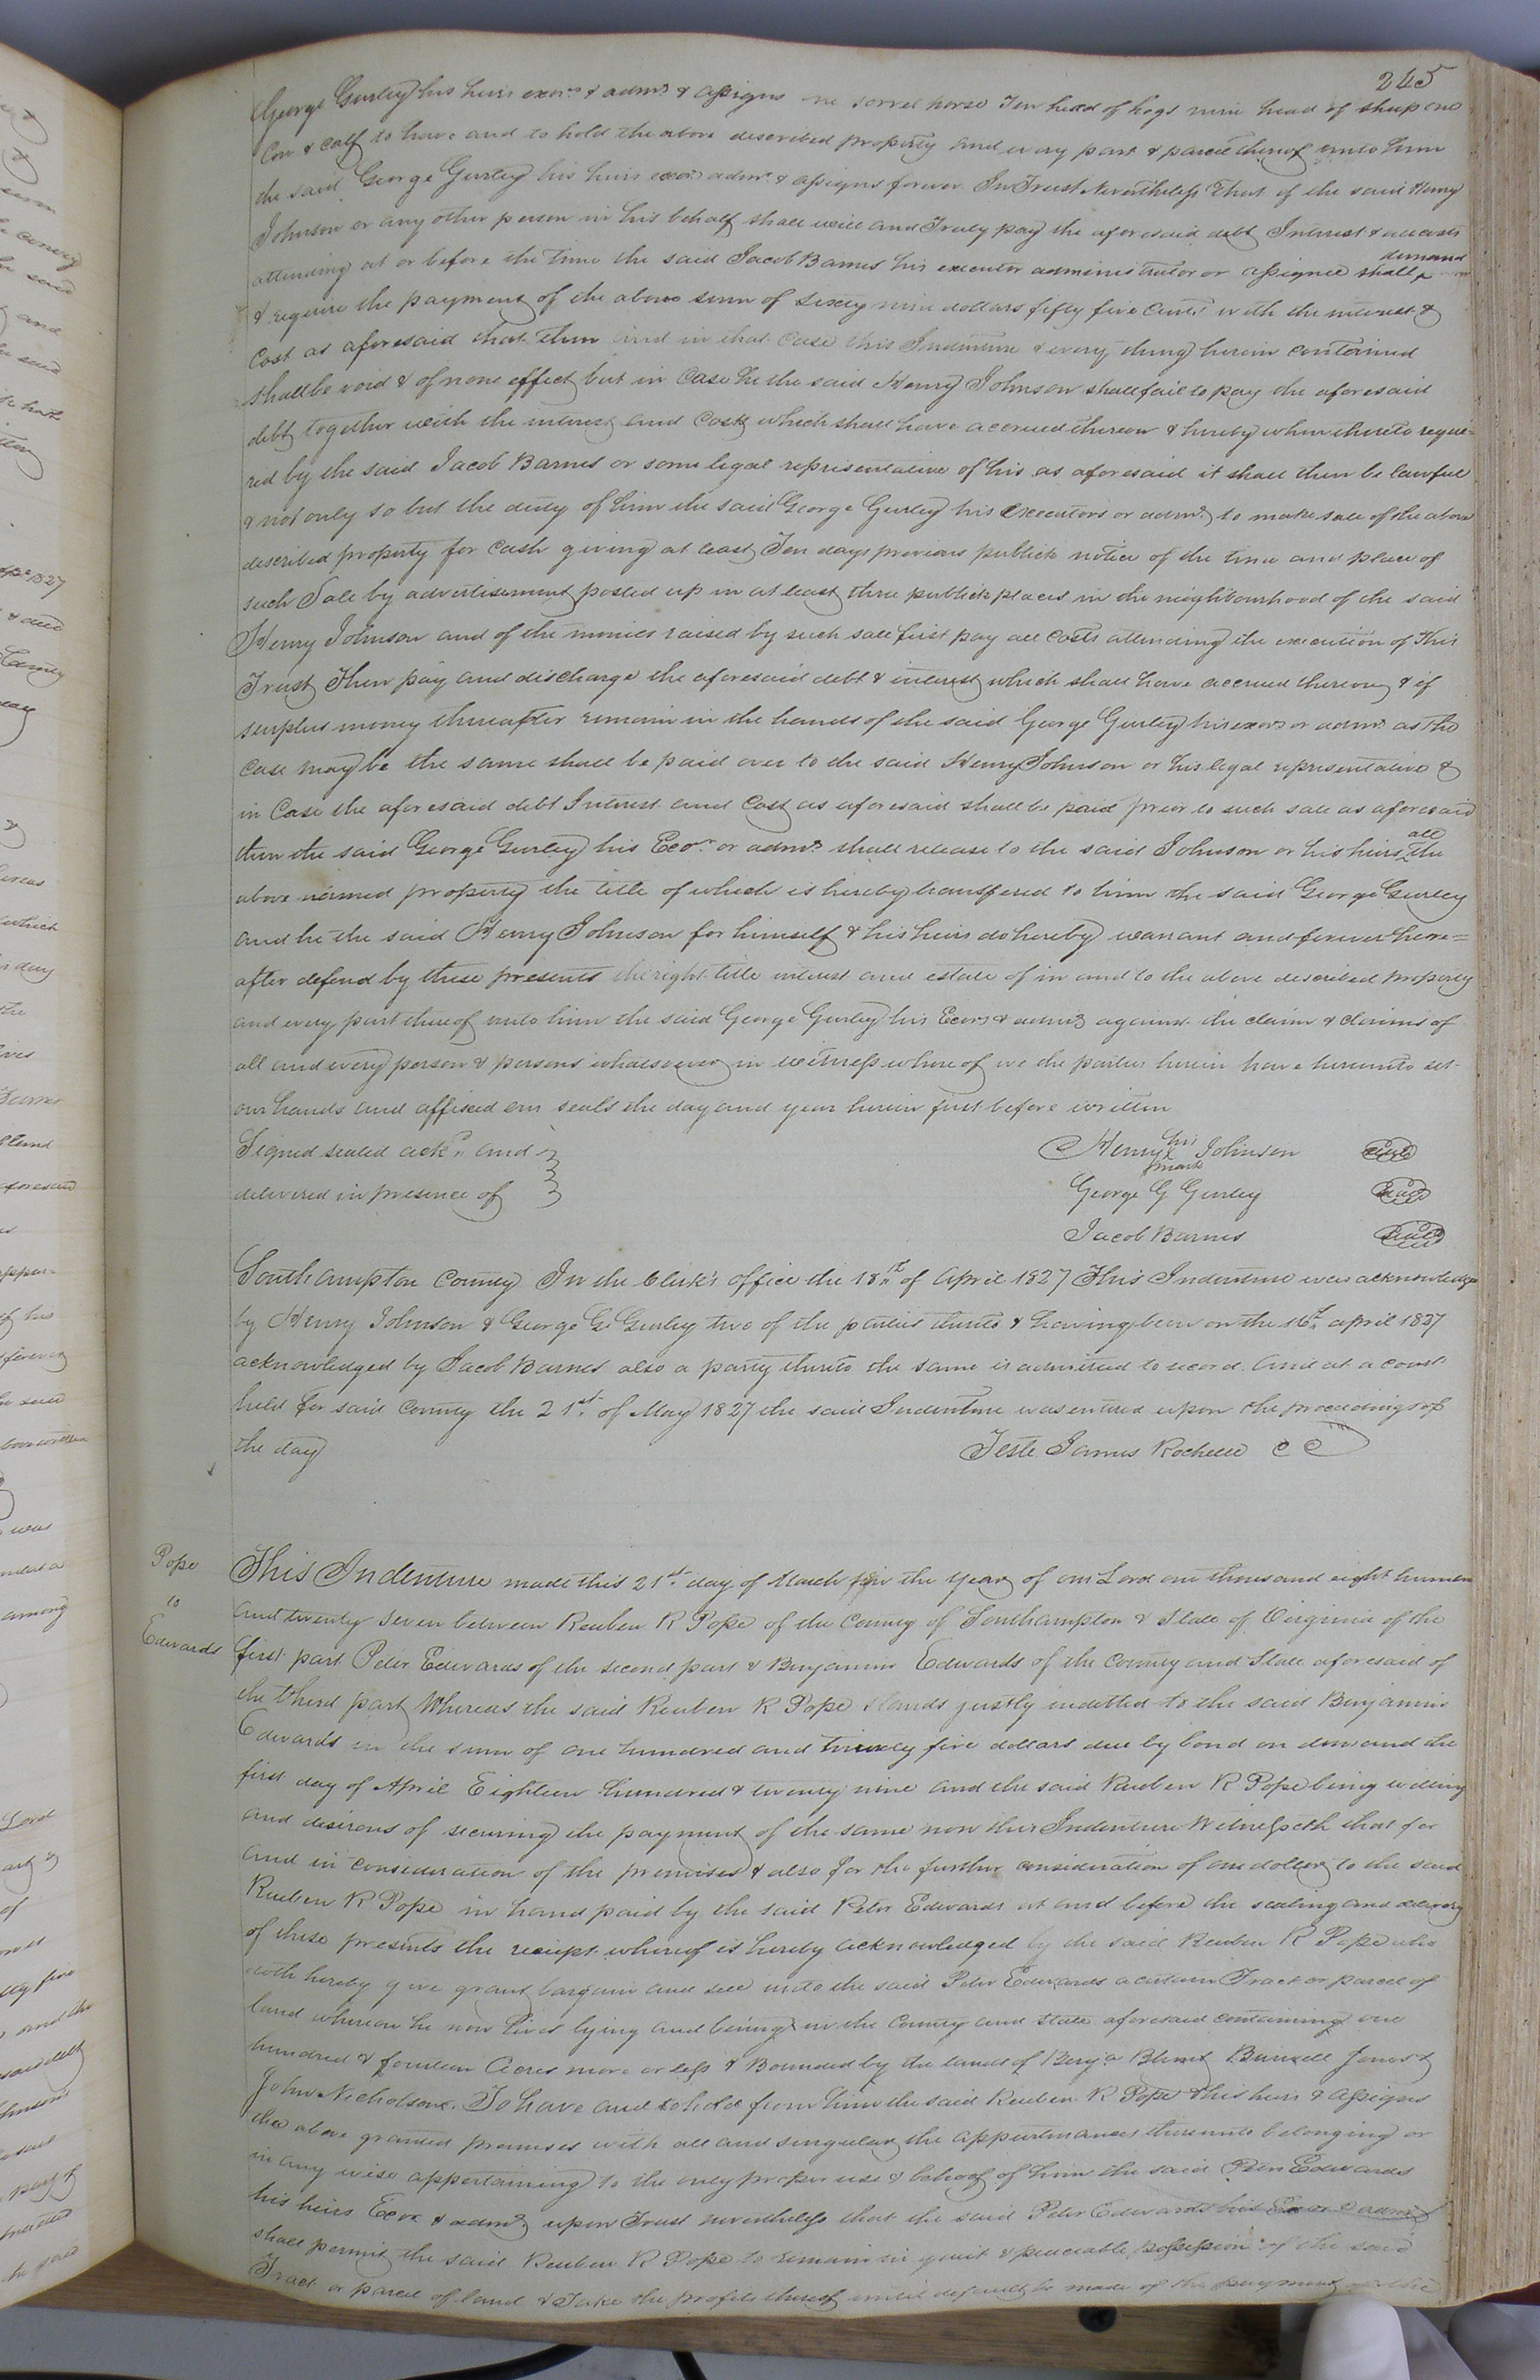 245
George Gurley his heirs exors & admrs & assigns one sorrel horse Ten head of hogs nine head of sheep one
Cow & calf to have and to hold the above described property and every part & parcel thereof unto him
the said George Gurley his heirs exors admrs & assigns forever. In Trust Nevertheless That if the said Henry
Johnson or any other person in his behalf shall well and Truly pay the aforesaid debt Interest & all costs
attending at or before the time the said Jacob Barnes his executor administrator or assignee shall demand
& require the payment of the above sum of sixty nine dollars fifty five Cents with the interest &
Cost as aforesaid that then and in that Case this Indenture & every thing herein contained
shall be void & of none effect but in Case he the said Henry Johnson shall fail to pay the aforesaid
debt together with the interest and Costs which shall have accrued thereon & hereby when thereto requi=
red by the said Jacob Barnes or some legal representative of his as aforesaid it shall then be lawful
& not only so but the duty of him the said George Gurley his executors or admrs to make sale of the above
described property for Cash giving at least Ten days previous publick notice of the time and place of
such Sale by advertisement posted up in at least three publick places in the neighbourhood of the said
Henry Johnson and of the monies raised by such sale first pay all costs attending the execution of This
Trust Then pay and discharge the aforesaid debt & interest which shall have accrued thereon & if
surplus money thereafter remain in the hands of the said George Gurley his exors or admrs as the
Case may be the same shall be paid over to the said Henry Johnson or his legal representative &
in Case the aforesaid debt Interest and Cost as aforesaid shall be paid prior to such sale as aforesaid
then the said George Gurley his Exors or admrs shall release to the said Johnson or his heirs all the
above named property the title of which is hereby transfered to him the said George Gurley
and he the said Henry Johnson for himself & his heirs do hereby warrant and forever here=
after defend by these presents the right title interest and estate of in and to the above described property
and every part thereof unto him the said George Gurley his Exors & admrs against the claim & claims of
all and every person & persons whatsoever in witness where of we the parties herein have hereunto set
our hands and affixed our seals the day and year herein first before written
Signed sealed ackd and
delivered in presence of
Henry his X mark Johnson Seal
George G Gurley Seal
Jacob Barnes Seal
Southampton County In the Clerk's office the 18th of April 1827 This Indenture was acknowledge
by Henry Johnson & George G. Gurley two of the parties thereto & having been on the 16th april 1827
acknowledged by Jacob Barnes also a party thereto the same is admitted to record. And at a court
held for said County the 21st of May 1827 the said Indenture was entered upon the proceedings of
the day
Teste James Rochelle C C
Pope
to
Edwards
This Indenture made this 21st day of March in the Year of our Lord one thousand eight hundred
and twenty seven between Reuben R Pope of the County of Southampton & State of Virginia of the
first part Peter Edwards of the second part & Benjamin Edwards of the County and State aforesaid of
the third part Whereas the said Reuben R Pope stands justly indetted to the said Benjamin
Edwards in the sum of one hundred and twenty five dollars due by bond on demand the
first day of April Eighteen hundred & twenty nine and the said Reuben R Pope being willing
and desirous of securing the payment of the same now this Indenture Witnesseth that for
and in consideration of the premises & also for the further consideration of one dollar to the said
Reuben R Pope in hand paid by the said Peter Edwards at and before the sealing and delivery
of these presents the reciept whereof is hereby acknowledged by the said Reuben R Pope who
doth hereby give grant bargain and sell unto the said Peter Edwards a certain Tract or parcel of
land whereon he now lives lying and being in the County and State aforesaid containing one
hundred & fourteen Acres more or less & Bounded by the lands of Benja Blunt Burwell Jones &
John Nicholson. To have and to hold from him the said Reuben R Pope & his heirs & assigns
the above granted premises with all and singular the appurtenances thereunto belonging or
in any wise appertaining to the only proper use & behoof of him the said Peter Edwards
his heirs Exors & admrs upon Trust nevertheless that the said Peter Edwards his Exors & admrs
shall permit the said Reuben R Pope to remain in quiet & peaceable possession of the said
Tract or parcel of land & Take the profits thereof until default be made of the payment